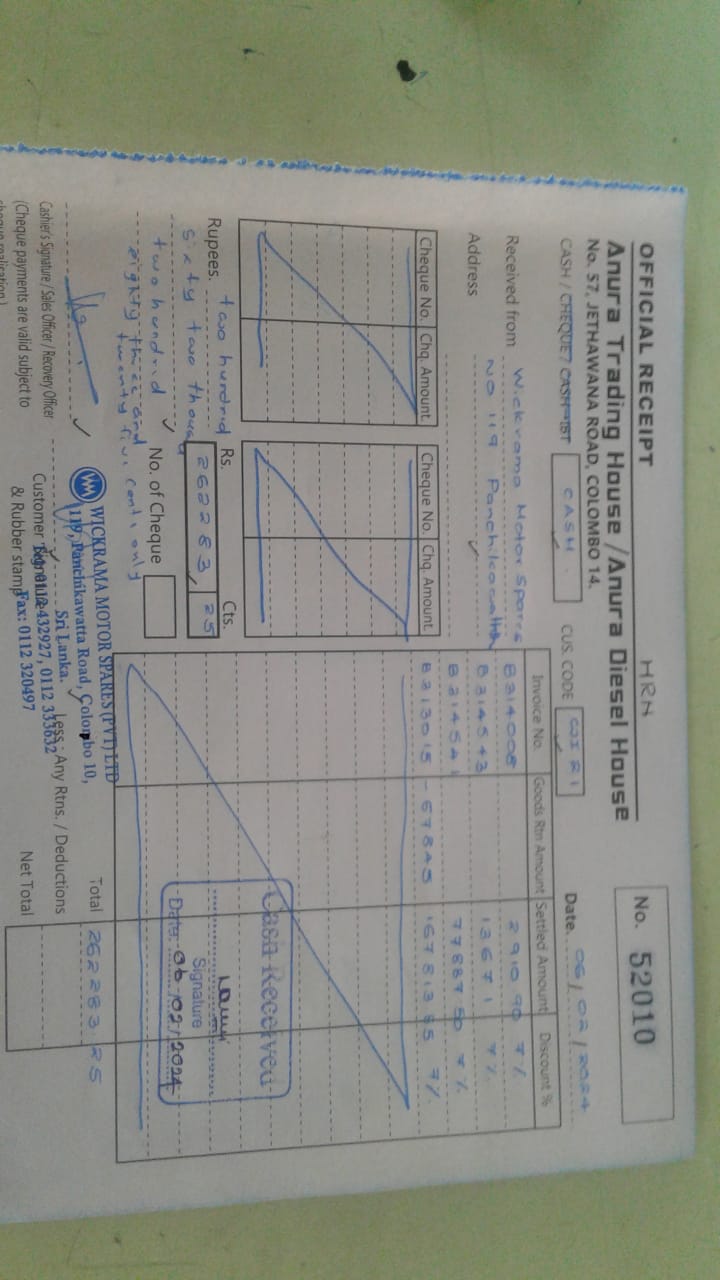 OFFICIAL RECEIPT HRN No. 52010
Anura Trading House / Anura Diesel House
No. 57, JETHAWANA ROAD, COLOMBO 14.
CASH / CHEQUE / CASH-IBT CASH CUS. CODE WIR1 Date. 06/02/2024
Received from Wickrama Motor Spares
Address No 119 Panchikawatha
Cheque No. Chq. Amount Cheque No. Chq. Amount
Invoice No. Goods Rtn Amount Settled Amount Discount %
B214008 2910 90 7%
B214543 13671 7%
B214541 77887 50 7%
B213015 - 67845 167813 85 7%
Rupees. two hundrid
sixty two thousand
two hundrid
eighty three and
twenty five cents only
Rs. Cts.
262283 25
No. of Cheque
Cash Received
Signature
Date: 06/02/2024
Total 262283 25
Less: Any Rtns. / Deductions
Net Total
WICKRAMA MOTOR SPARES (PVT) LTD
119, Panchikawatta Road, Colombo 10,
Sri Lanka.
Tel: 0112 432927, 0112 333632
Fax: 0112 320497
Cashier's Signature / Sales Officer / Recovery Officer
Customer Signature
& Rubber stamp
(Cheque payments are valid subject to
cheque realisation)